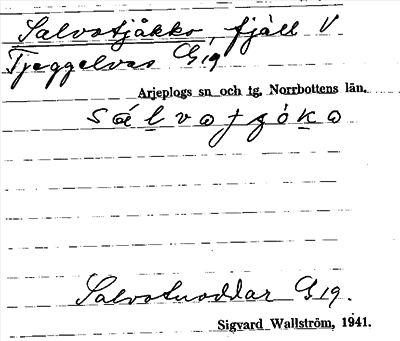 Salvotjåkko, fjäll V
Tjeggelvas G 19
Arjeplogs sn och tg. Norrbottens län.
Salvotuoddar G 19.
Sigvard Wallström, 1941.